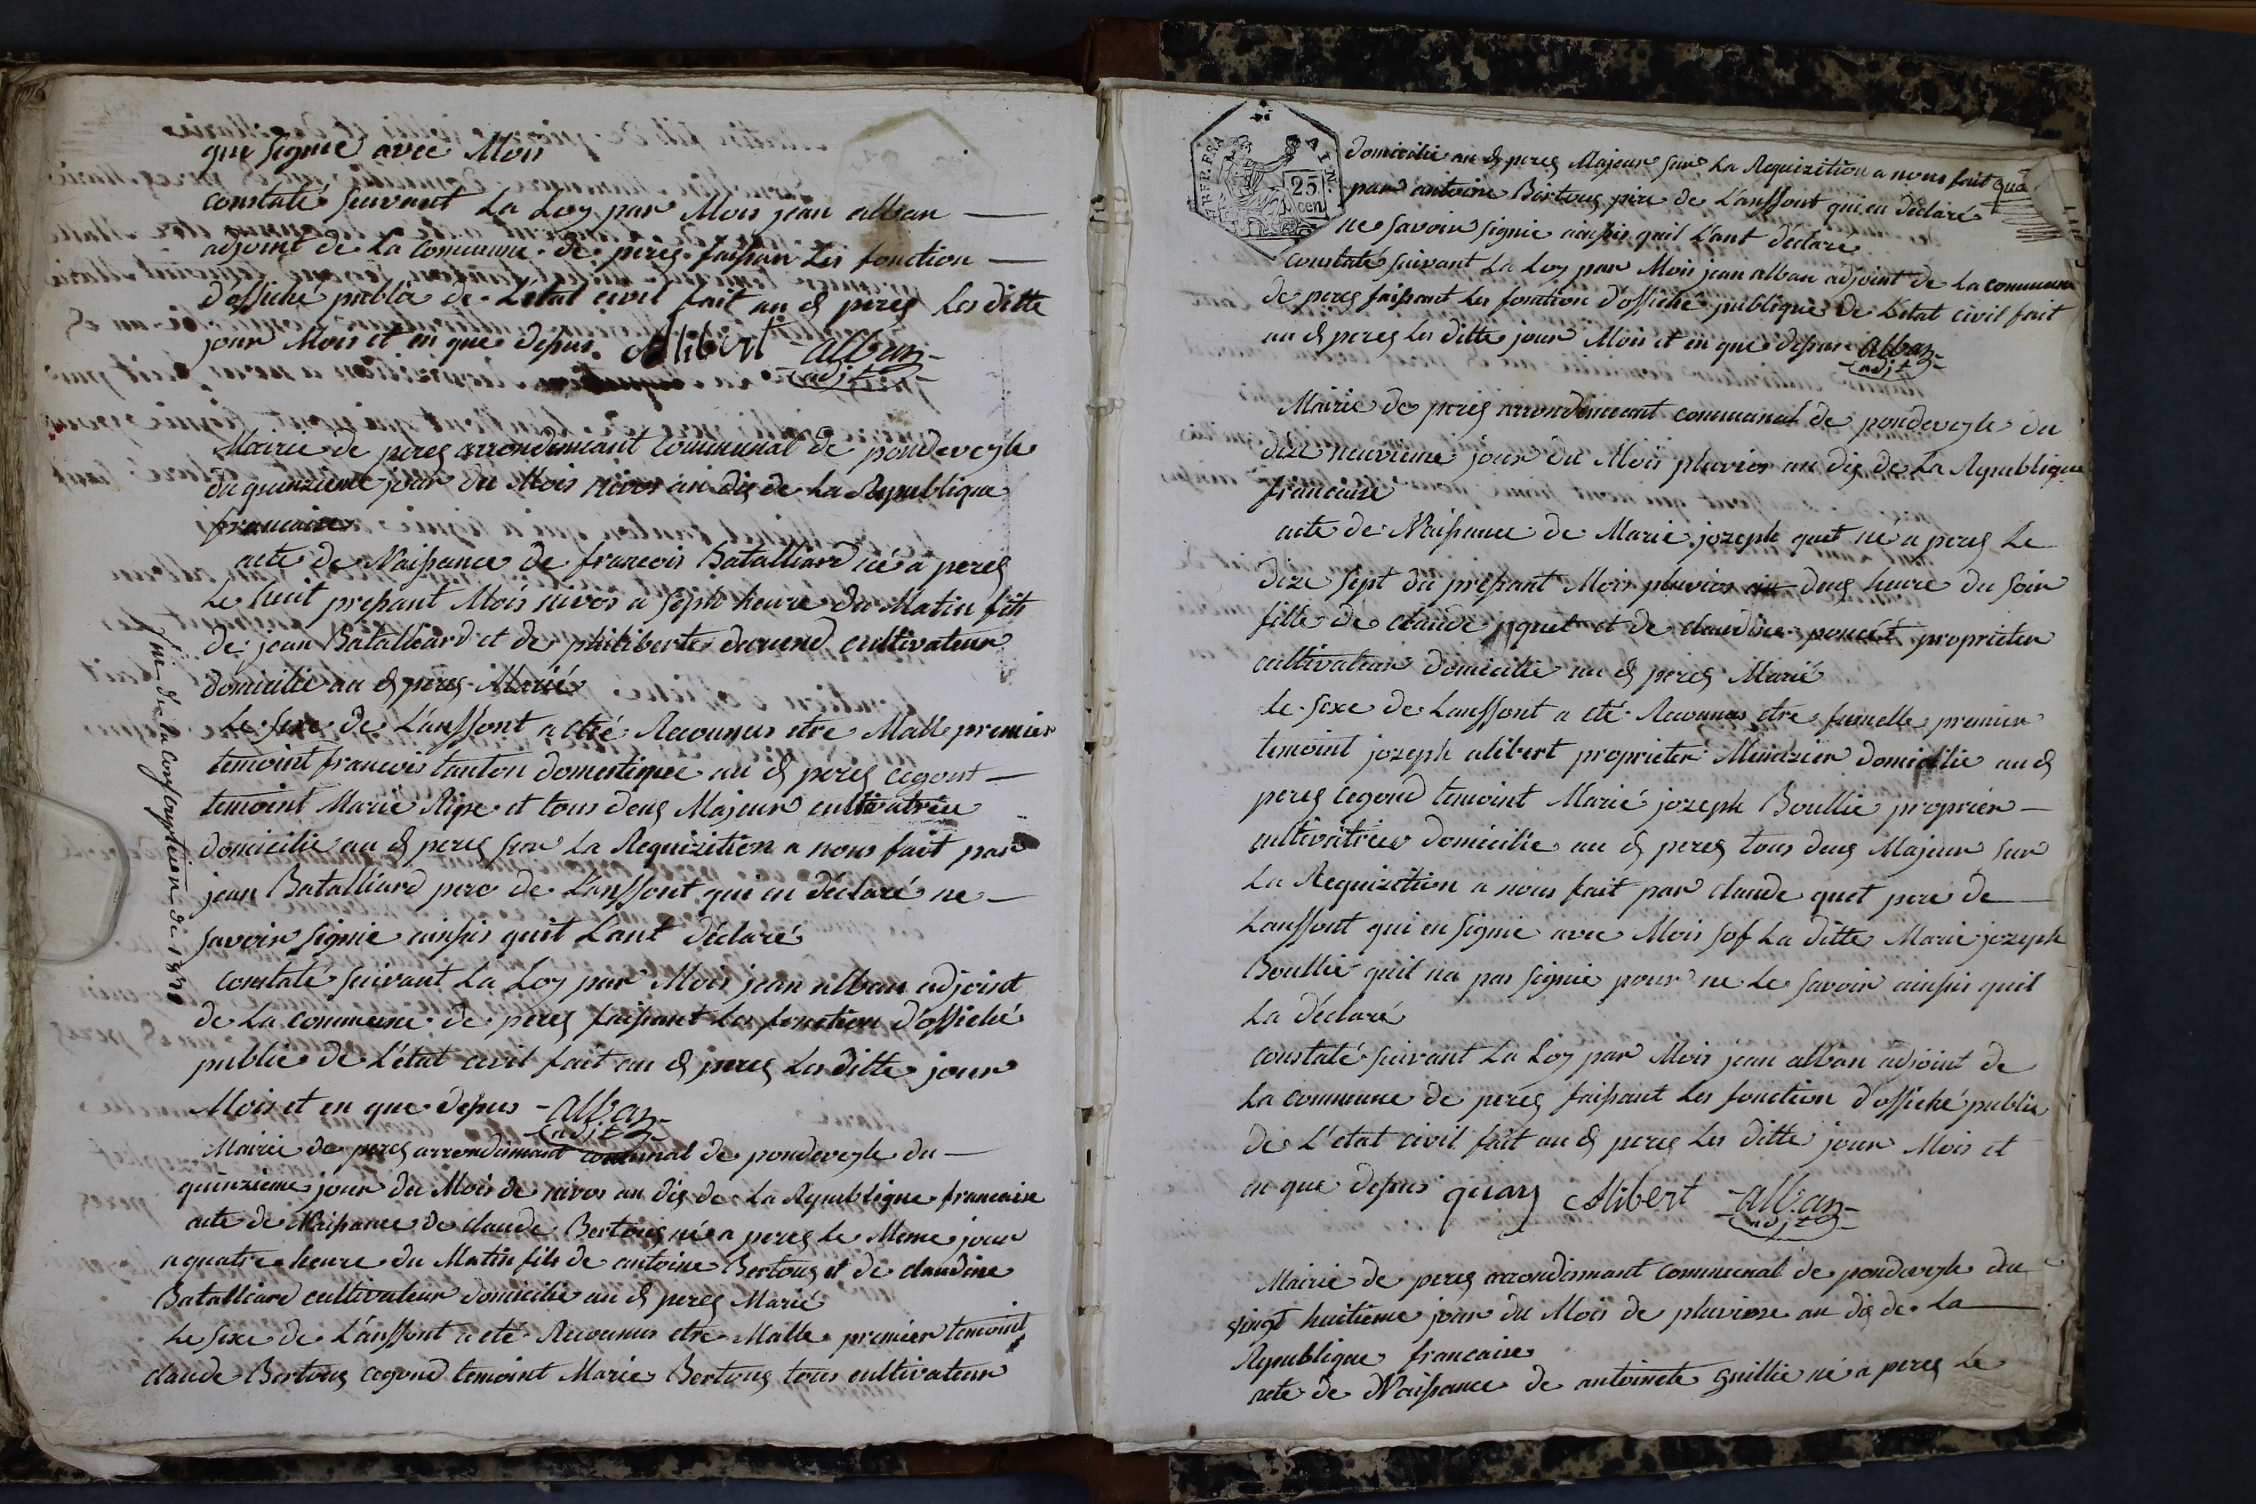 que signie avec Mois
constaté suivant La Loy par Mois jean alban
adjoint de La Commune de perez faissan Les fonction
d'offiché public de L'etat civil fait au d perez Les ditte
jour Mois et en que depus. Alibert alban
adjt
Mairie de perez arrondimant Communal de pondeveyle
du quinzieme jour du Mois nivos an dix de La Republique
francaise
acte de Naissance de francois Batalliard né à perez
Le huit pressant Mois nivos a sept heure du Matin fils
de jean Batalliard et de philiberte cultivateur
domicilié au d perez Marié
Le sexe de L'anffont a etté Reconnus etre Malle premier
temoint francois tanton domestique au d perez cegont
temoint Marie Rige et tous deux Majeur cultivatrice
domicilié au d perez sur La Requizition a nous fait par
jean Batalliard pere de L'anffont qui en déclaré ne
savoir signie ainssis quil L'ant déclaré
constaté suivant La Loy par Mois jean alban adjoint
de La commune de perez faissant Les fonction d'offiché
public de L'état civil fait au d perez Les ditte jour
Mois et en que depus alban
adjt
Mairie de perez arrondimant communal de pondeveyle du
quinzieme jour du Mois de nivos an dix de La Republique francaise
acte de Naissance de claude Bertoux né a perez le Meme jour
a quatre heure du Matin fils de antoine Bertoux et de claudine
Batalliard cultivateur domicilié au d perez Marié
Le sexe de L'anffont a eté Reconnus etre Malle premier temoint
claude Bertoux cegond temoint Marie Bertoux tous cultivateur
de la Conscription de 1820
REP. FRA
AIN.
25
cen
domicilié au d perez Majeur sur La Requizition a nous fait
par antoine Bertoux pere de L'anffont qui en déclaré
ne savoir signie ainssis quil L'ant déclaré
constaté suivant La Loy par Mois jean alban adjoint de La commune
de perez faissant Les fonction d'offiché publique de L'etat civil fait
au d perez Les ditte jour Mois et en que depus alban
adjt
Mairie de perez arrondimant communal de pondeveyle du
dize neuvieme jour du Mois pluvios an dix de La Republique
francaise
acte de Naissance de Marie jozeph quet né a perez Le
dize sept du pressant Mois pluvios deux heure du soir
fille de claude quet et de claudine poncet proprieter
cultivateur domicilié au d perez Marié
Le sexe de Lanffont a eté Reconnus etre fumelle premier
temoint jozeph alibert proprieter Menuzier domicilié au d
perez cegond temoint Marie jozeph Boullié proprier
cultivatrice domicilié au d perez tous deux Majeur sur
La Requizition a nous fait par claude quet pere de
Lanffont qui en signie avec Mois sof La ditte Marie jozeph
Boullié quil na pas signie pour ne Le savoir ainssis quil
La déclaré
constaté suivant La Loy par Mois jean alban adjoint de
La commune de perez faissant Les fonction d'offiché public
de L'etat civil fait au d perez Les ditte jour Mois et
en que depus Alibert alban
adjt
Mairie de perez arrondimant communal de pondeveyle du
vingt huitieme jour du Mois de pluviose an dix de La
Republique francaise
acte de Naissance de antoinete guillie né a perez Le